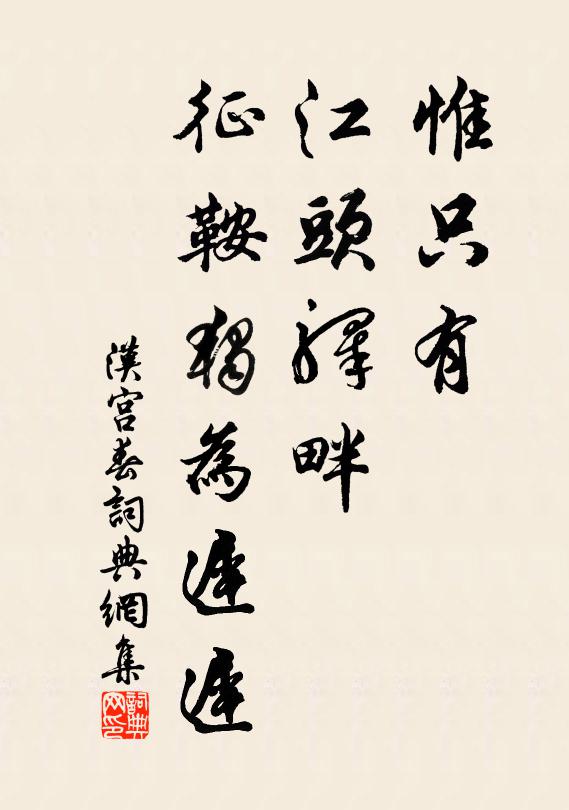 惟只有
江頭驛畔
征鞍獨為遲遲
漢宮春詞典網集
詞典網印